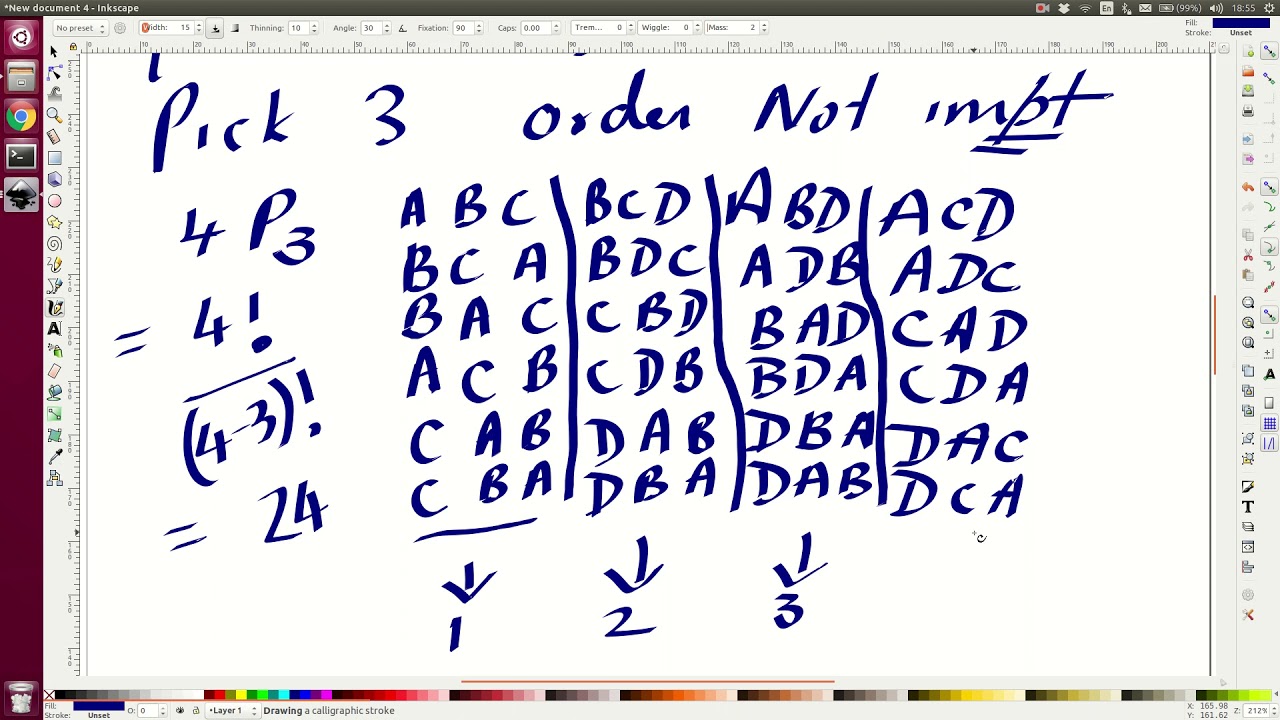 *New document 4 - Inkscape
En
(99%)
18:55
No preset
Width: 15
Thinning: 10
Angle: 30
Fixation: 90
Caps: 0.00
Trem... 0
Wiggle: 0
Mass: 2
Fill:
Stroke: Unset
Pick 3 order Not impt
4 P3
A B C BCD ABD ACD
BC A BDC ADB ADC
= 4!
B A C CBD BAD CAD
(4-3)!
A C B CDB BDA CDA
C A B DAB DBA DAC
= 24
C BA DBA DAB DCA
1 2 3
Fill:
Stroke: Unset
O: 0
Layer 1
Drawing a calligraphic stroke
X: 165.98
Y: 161.62
Z: 212%